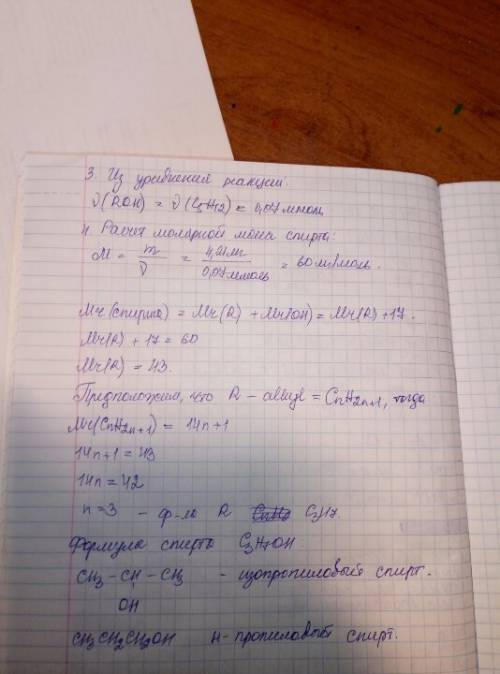 3. Из уравнений реакции:
ν(ROH) = ν(C3H12) = 0,07 ммоль
4. Расчет молярной массы спирта:
M = m/ν = 4,21мг/0,07ммоль = 60 мг/ммоль.
Mr(спирта) = Mr(R) + Mr(OH) = Mr(R) + 17.
Mr(R) + 17 = 60
Mr(R) = 43.
Предположим, что R – alkyl = CnH2n+1, тогда
Mr(CnH2n+1) = 14n+1
14n+1 = 43
14n = 42
n = 3 – ф-ла R C3H7
Формула спирта C3H7OH.
CH3 – CH – CH3 – изопропиловый спирт.
OH
CH3CH2CH2OH н-пропиловый спирт.